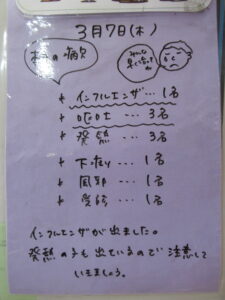 3月7日(木)
本日の病欠
みんな
早く元気に
なってね
* インフルエンザ… 1名
* 嘔吐 … 3名
* 発熱 … 3名
* 下痢 … 1名
* 風邪 … 1名
* 受診 … 1名
インフルエンザが出ました。
発熱の子も出ているので 注意して
いきましょう。